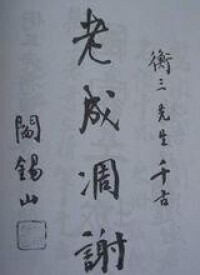 衡三先生千古
老成凋謝
閻錫山